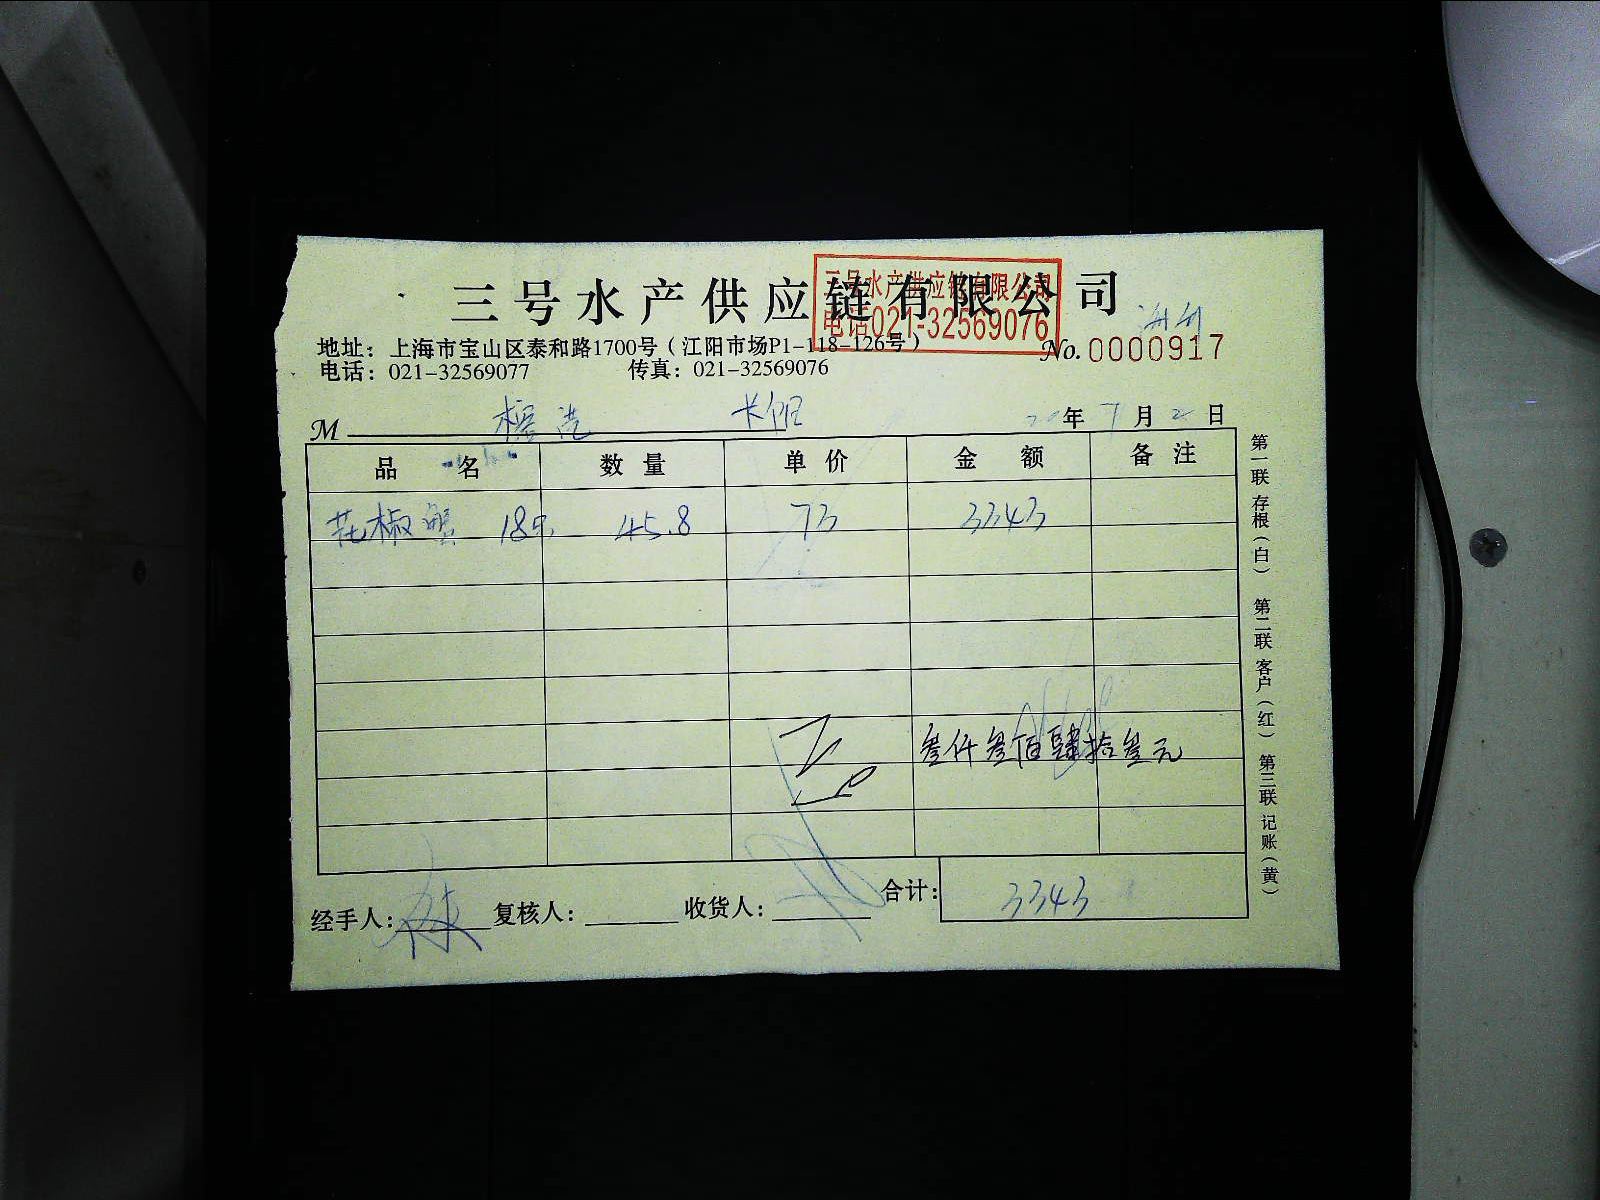 三号水产供应链有限公司
三号水产供应链有限公司
电话021-32569076
地址：上海市宝山区泰和路1700号（江阳市场P1-118-126号）
No. 0000917
电话：021-32569077 传真：021-32569076
M 年 7 月 2 日
品 名 数 量 单 价 金 额 备 注
花椒蟹 18只 45.8 73 3343
叁仟叁佰肆拾叁元
经手人： 复核人： 收货人： 合计： 3343
第一联 存根（白） 第二联 客户（红） 第三联 记账（黄）